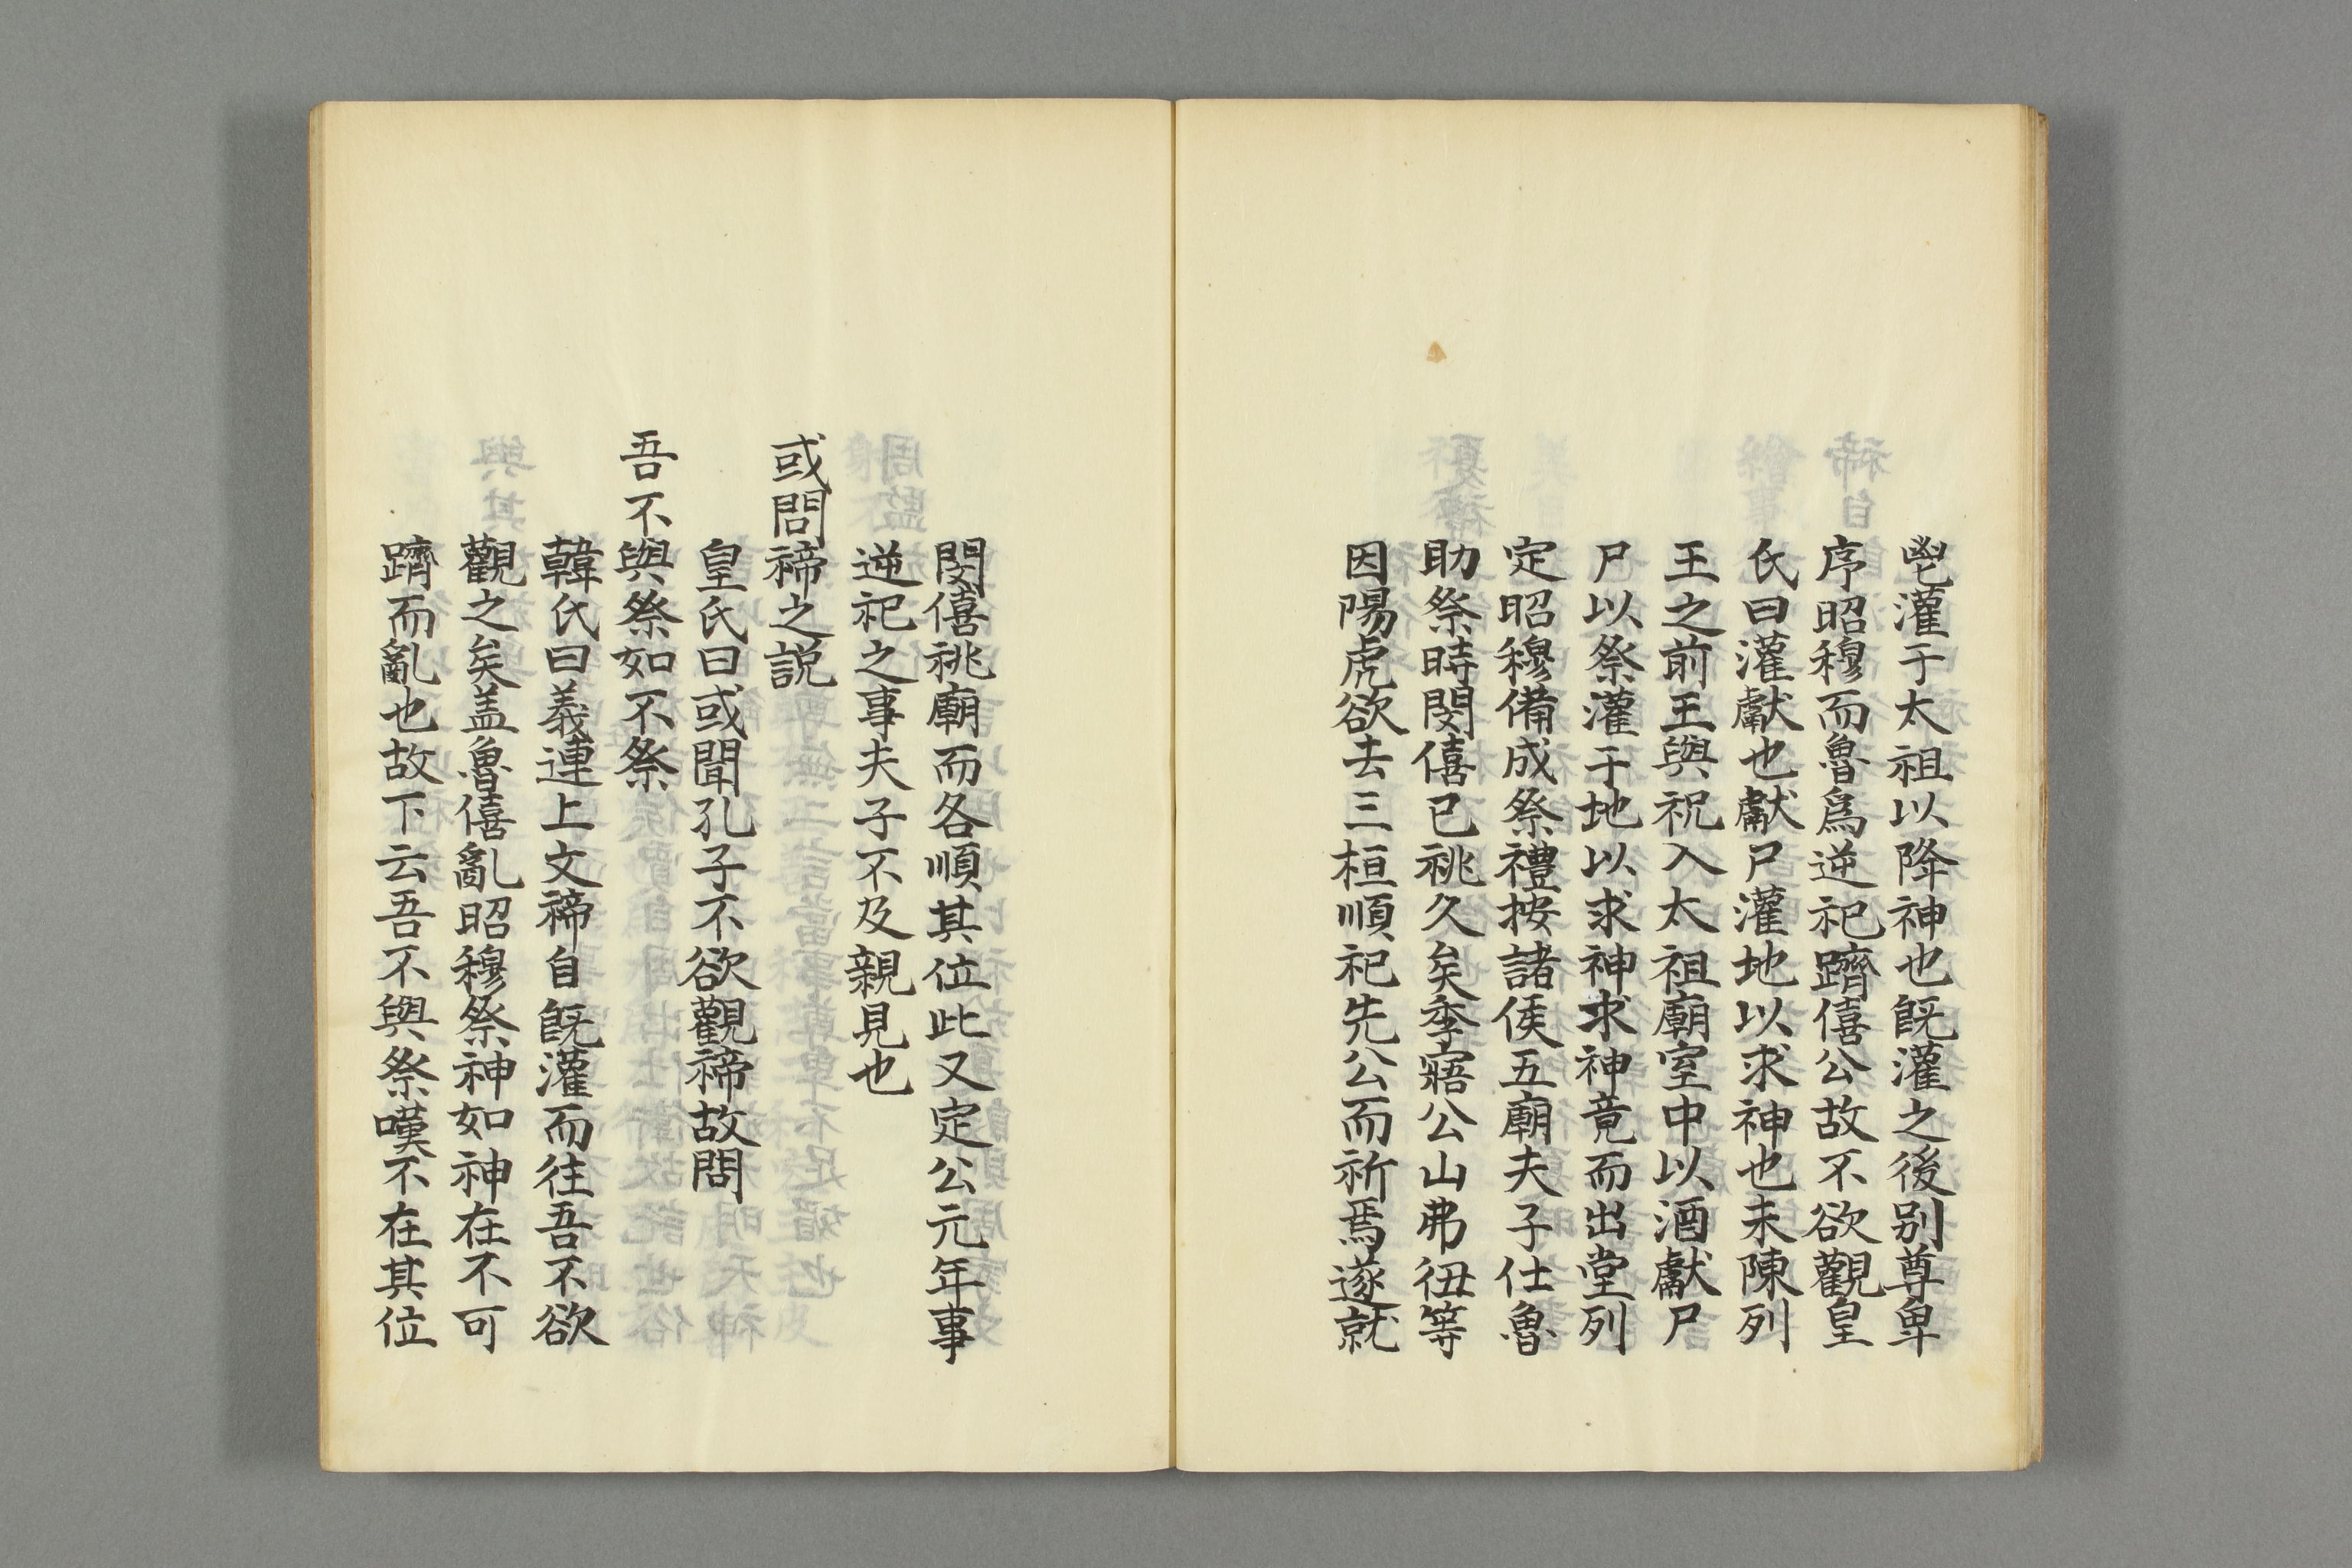 鬯灌于太祖以降神也既灌之後別尊卑
序昭穆而魯爲逆祀躋僖公故不欲觀皇
氏曰灌獻也獻尸灌地以求神也未陳列
王之前王與祝入太祖廟室中以酒獻尸
尸以祭灌于地以求神求神竟而出堂列
定昭穆備成祭禮按諸侯五廟夫子仕魯
助祭時閔僖已祧久矣季寤公山弗忸等
因陽虎欲去三桓順祀先公而祈焉遂就
閔僖祧廟而各順其位此又定公元年事
逆祀之事夫子不及親見也
或問禘之説
皇氏曰或聞孔子不欲觀禘故問
吾不與祭如不祭
韓氏曰義連上文禘自既灌而往吾不欲
觀之矣盖魯僖亂昭穆祭神如神在不可
躋而亂也故下云吾不與祭嘆不在其位